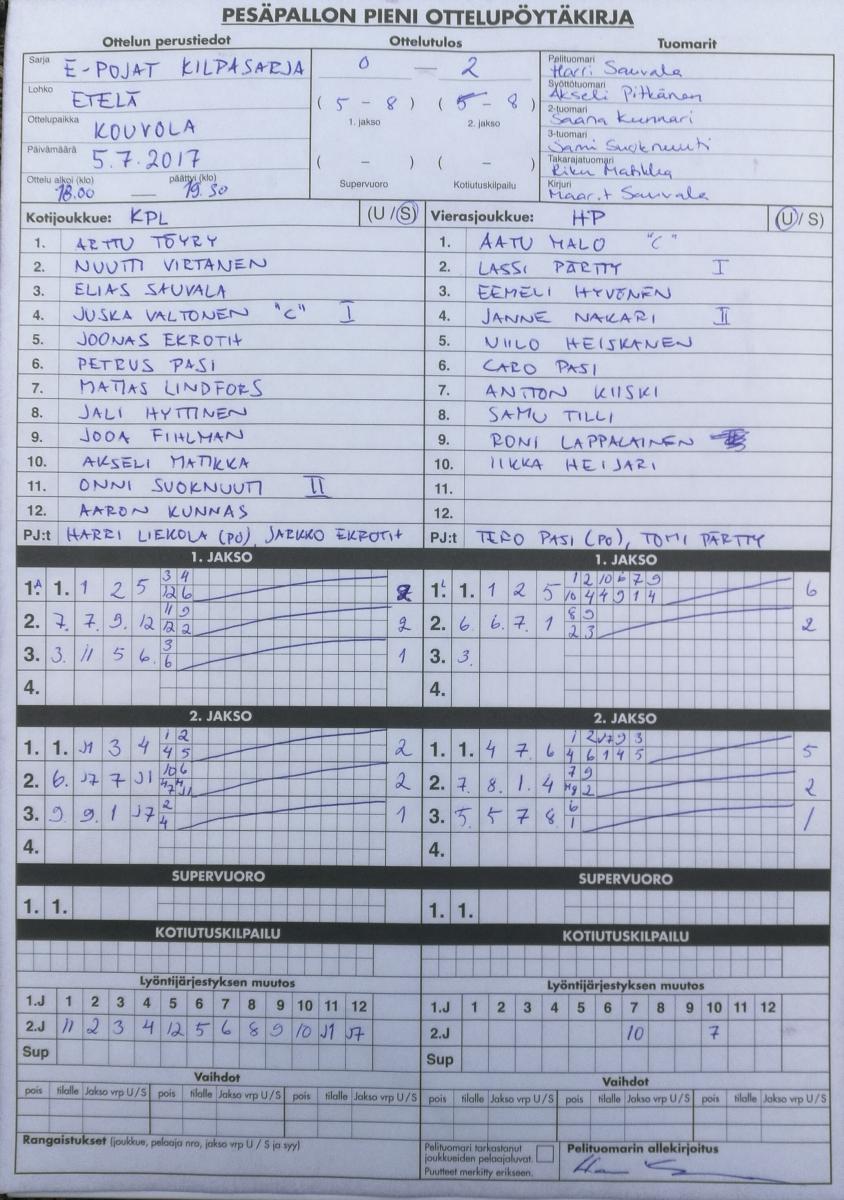 PESÄPALLON PIENI OTTELUPÖYTÄKIRJA
Ottelun perustiedot
Sarja E-POJAT KILPASARJA
Lohko ETELÄ
Ottelupaikka KOUVOLA
Päivämäärä 5.7.2017
Ottelu alkoi (klo) päättyi (klo)
18.00 — 19.30
Ottelutulos
0 — 2
( 5 - 8 ) ( 5 - 8 )
1. jakso 2. jakso
( - ) ( - )
Supervuoro Kotiutuskilpailu
Tuomarit
Pelituomari Harri Sauvala
Syöttötuomari Akseli Pitkänen
2-tuomari Saana Kunnari
3-tuomari Sami Suoknuuti
Takarajatuomari Riku Matikka
Kirjuri Maarit Sauvala
Kotijoukkue: KPL (U/S)
1. ARTTU TÖYRY
2. NUUTTI VIRTANEN
3. ELIAS SAUVALA
4. JUSKA VALTONEN "C" I
5. JOONAS EKROTH
6. PETRUS PASI
7. MATIAS LINDFORS
8. JALI HYTTINEN
9. JOOA FIHLMAN
10. AKSELI MATIKKA
11. ONNI SUOKNUUTI II
12. AARON KUNNAS
PJ:t HARRI LIEKOLA (PO), JARKKO EKROTH
Vierasjoukkue: HP (U/S)
1. AATU MALO "C"
2. LASSI PÄRTTY I
3. EEMELI HYVÖNEN
4. JANNE NAKARI II
5. NIILO HEISKANEN
6. CARO PASI
7. ANTTON KIISKI
8. SAMU TILLI
9. RONI LAPPALAINEN
10. IIKKA HEIJARI
11.
12.
PJ:t TERO PASI (PO), TOMI PÄRTTY
1. JAKSO
1. A 1. 1 2 5 3 4 2
12 6
2. 7. 7. 9. 12 11 9 2
12 2
3. 3. 11 5 6. 3 1
6
4.
1. JAKSO
1. L 1. 1 2 5 1 2 10 6 7 9 6
10 4 4 9 1 4
2. 6 6. 7. 1 8 9 2
2 3
3. 3.
4.
2. JAKSO
1. 1. J1 3 4 1 2 2
4 5
2. 6. J7 7 J1 10 6 2
3. 9. 9. 1 J7 2 1
4
4.
2. JAKSO
1. 1. 4 7 6 1 2 J7 9 3 5
4 6 1 4 5
2. 7. 8. 1. 4 7 9 2
2
3. 5. 5 7 8 6 1
1
4.
SUPERVUORO
1. 1.
SUPERVUORO
1. 1.
KOTIUTUSKILPAILU
KOTIUTUSKILPAILU
Lyöntijärjestyksen muutos
1.J 1 2 3 4 5 6 7 8 9 10 11 12
2.J 11 2 3 4 12 5 6 8 9 10 J1 J7
Sup
Lyöntijärjestyksen muutos
1.J 1 2 3 4 5 6 7 8 9 10 11 12
2.J 10 7
Sup
Vaihdot
pois tilalle Jakso vrp U/S pois tilalle Jakso vrp U/S pois tilalle Jakso vrp U/S
Vaihdot
pois tilalle Jakso vrp U/S pois tilalle Jakso vrp U/S pois tilalle Jakso vrp U/S
Rangaistukset (joukkue, pelaaja nro, jakso vrp U / S ja syy)
Pelituomari tarkastanut
joukkueiden pelaajaluvat.
Puutteet merkitty erikseen.
Pelituomarin allekirjoitus